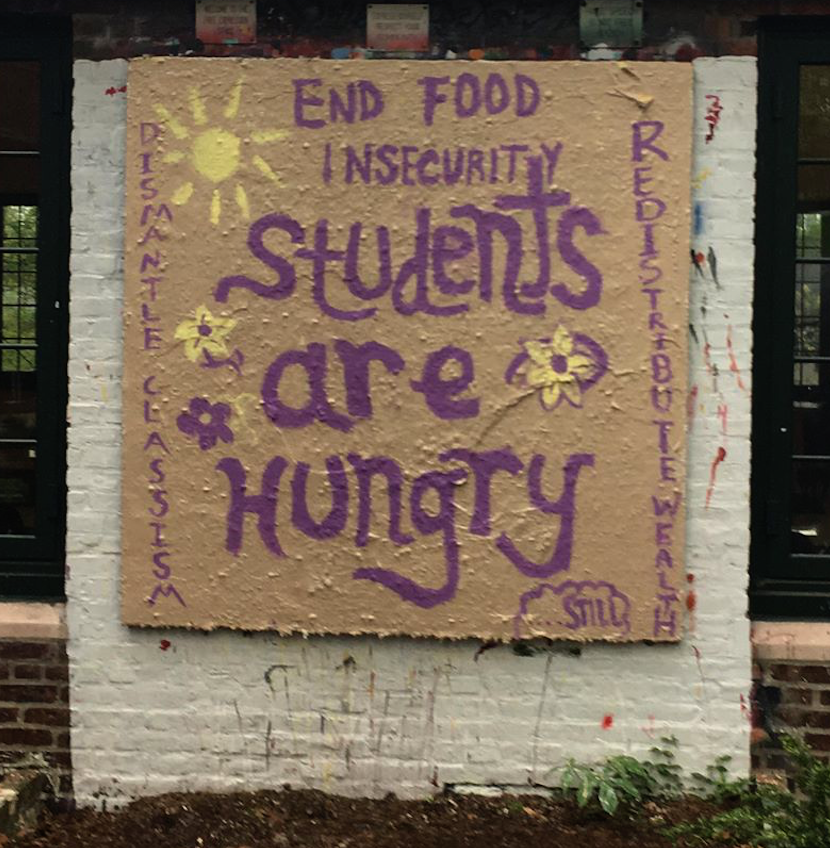 END FOOD
INSECURITY
Students
are
Hungry
...STILL
DISMANTLE CLASSISM
REDISTRIBUTE WEALTH